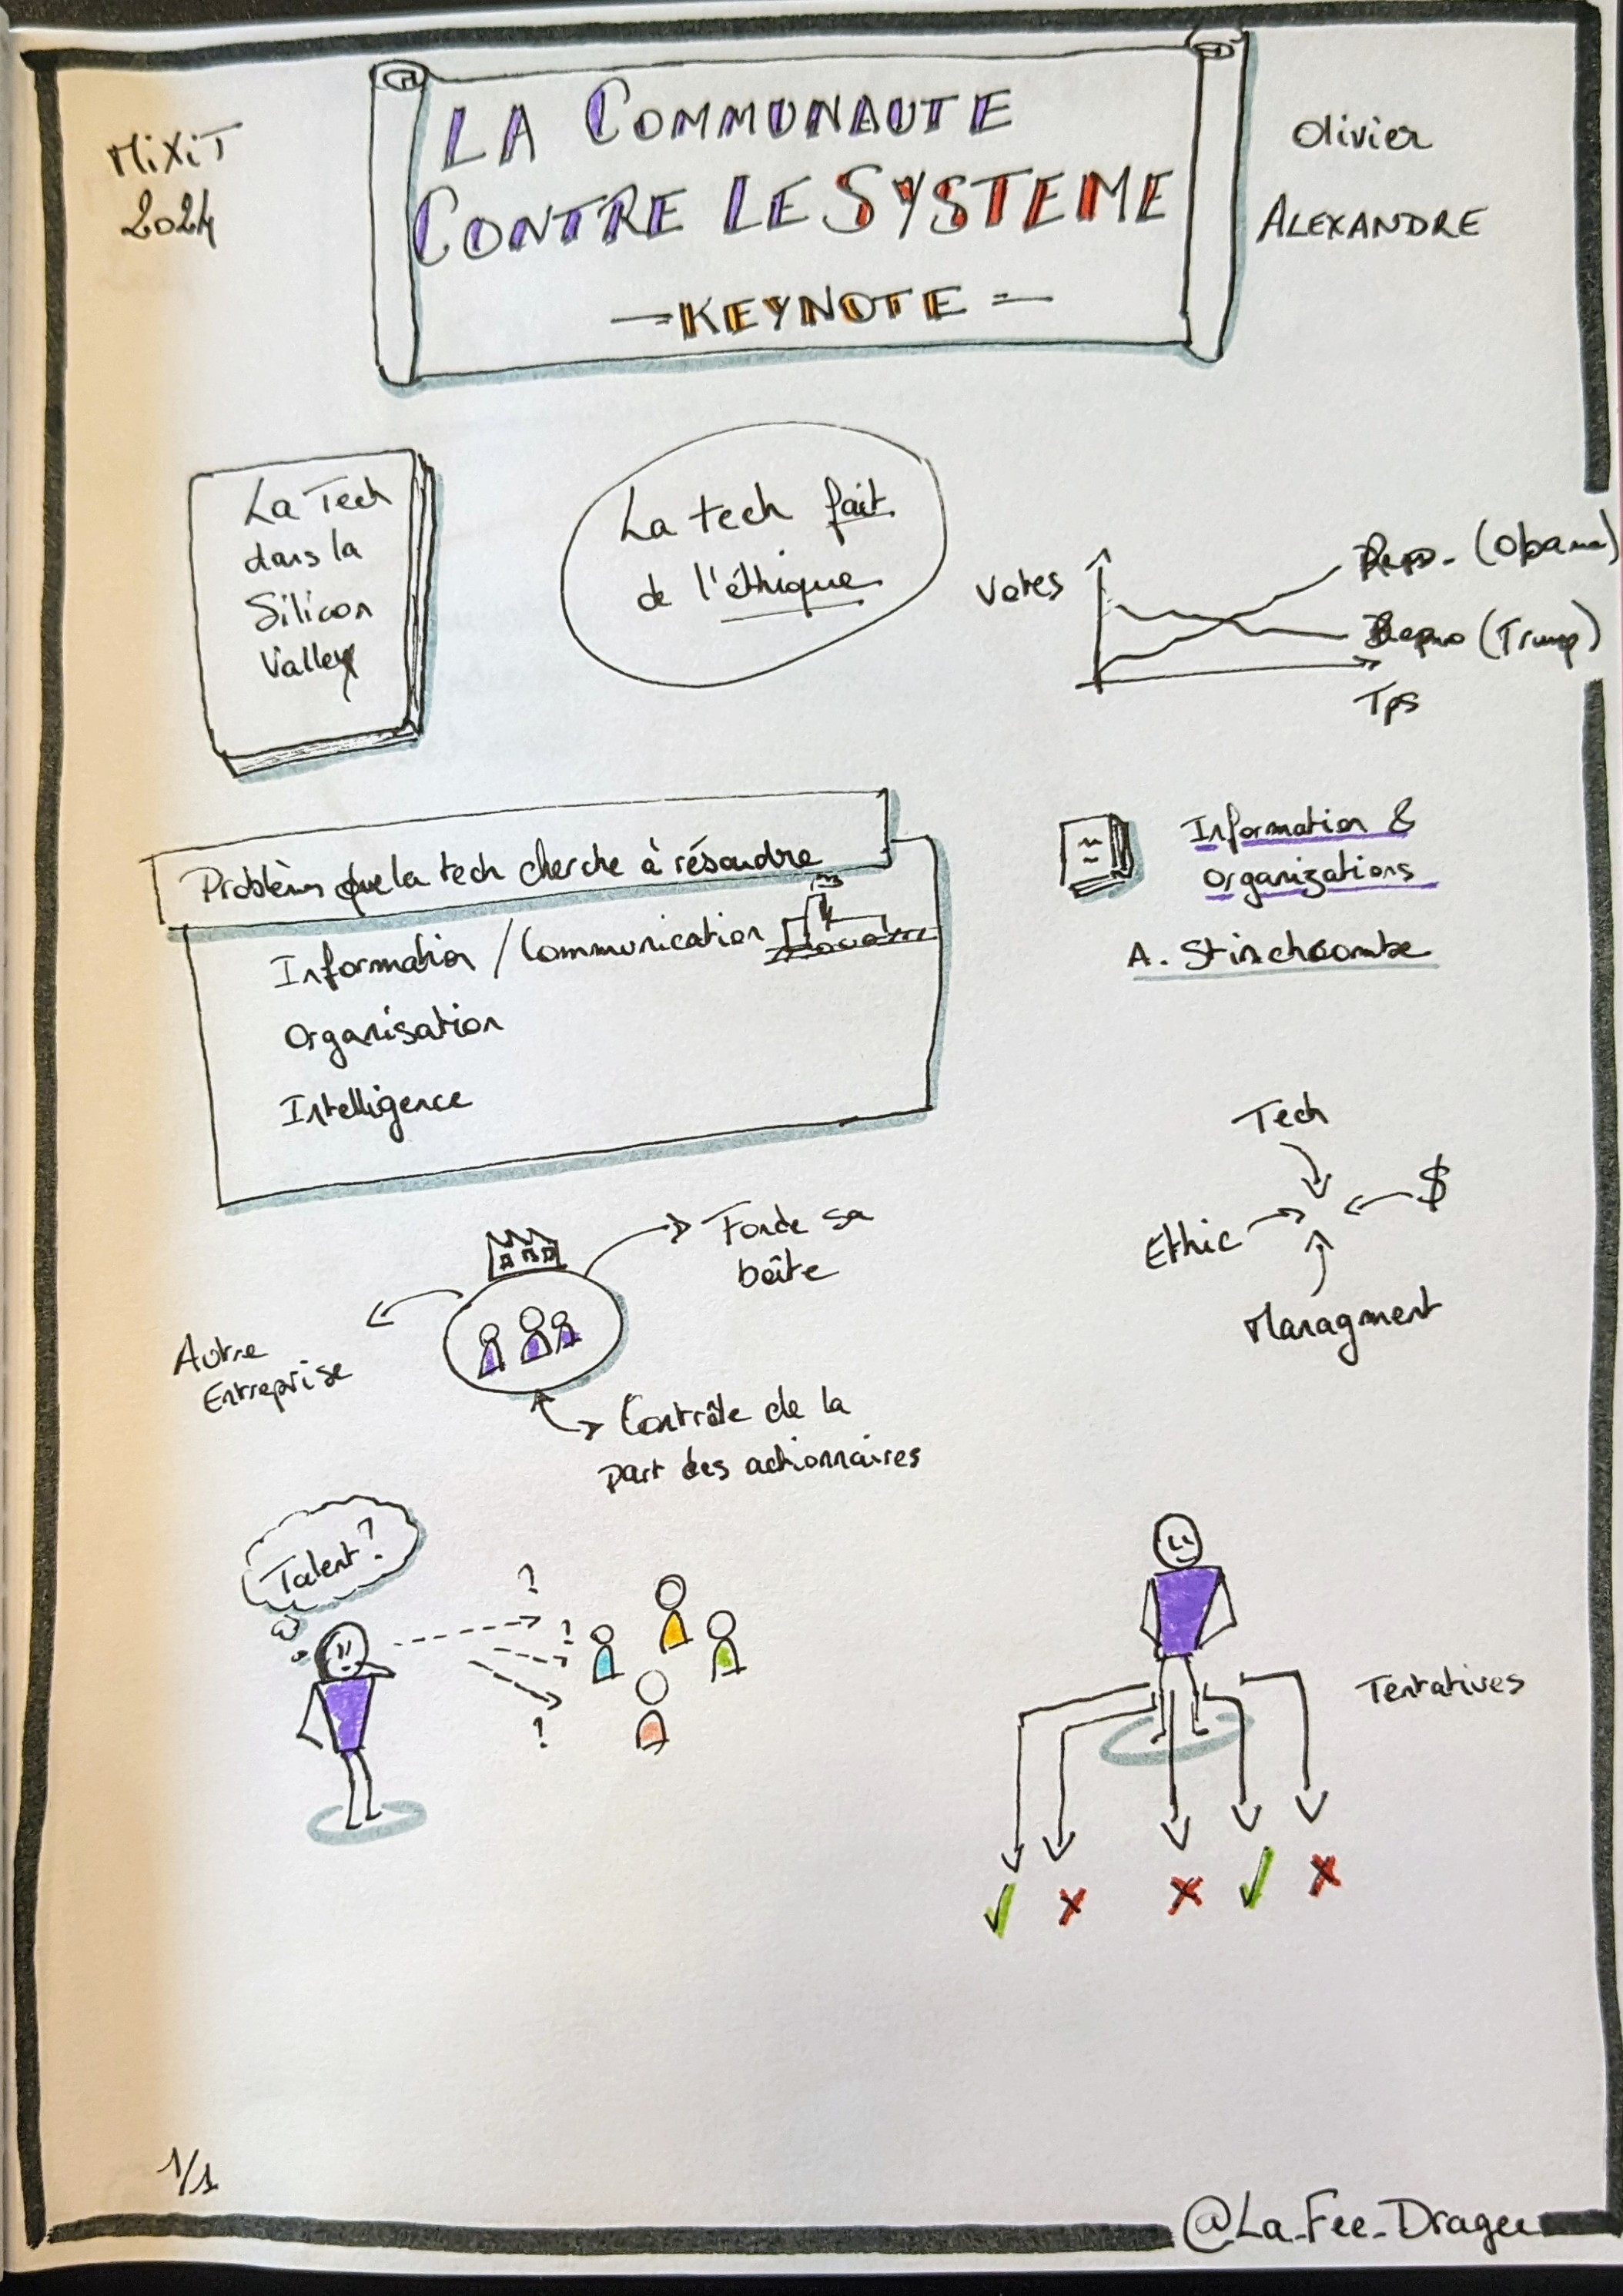 MiXiT
2024
LA COMMUNAUTE
CONTRE LE SYSTEME
KEYNOTE
Olivier
ALEXANDRE
La Tech
dans la
Silicon
Valley
La tech fait
de l'éthique
Votes
(Obama)
(Trump)
Tps
Problèm que la tech cherche à résoudre
Information / Communication
Organisation
Intelligence
Information &
Organizations
A. Stinchcombe
Tech
$
Ethic
Managment
Fonde sa
boîte
Autre
Entreprise
Contrôle de la
part des actionnaires
Talent ?
?
?
?
Tentatives
1/1
@La_Fee_Dragee